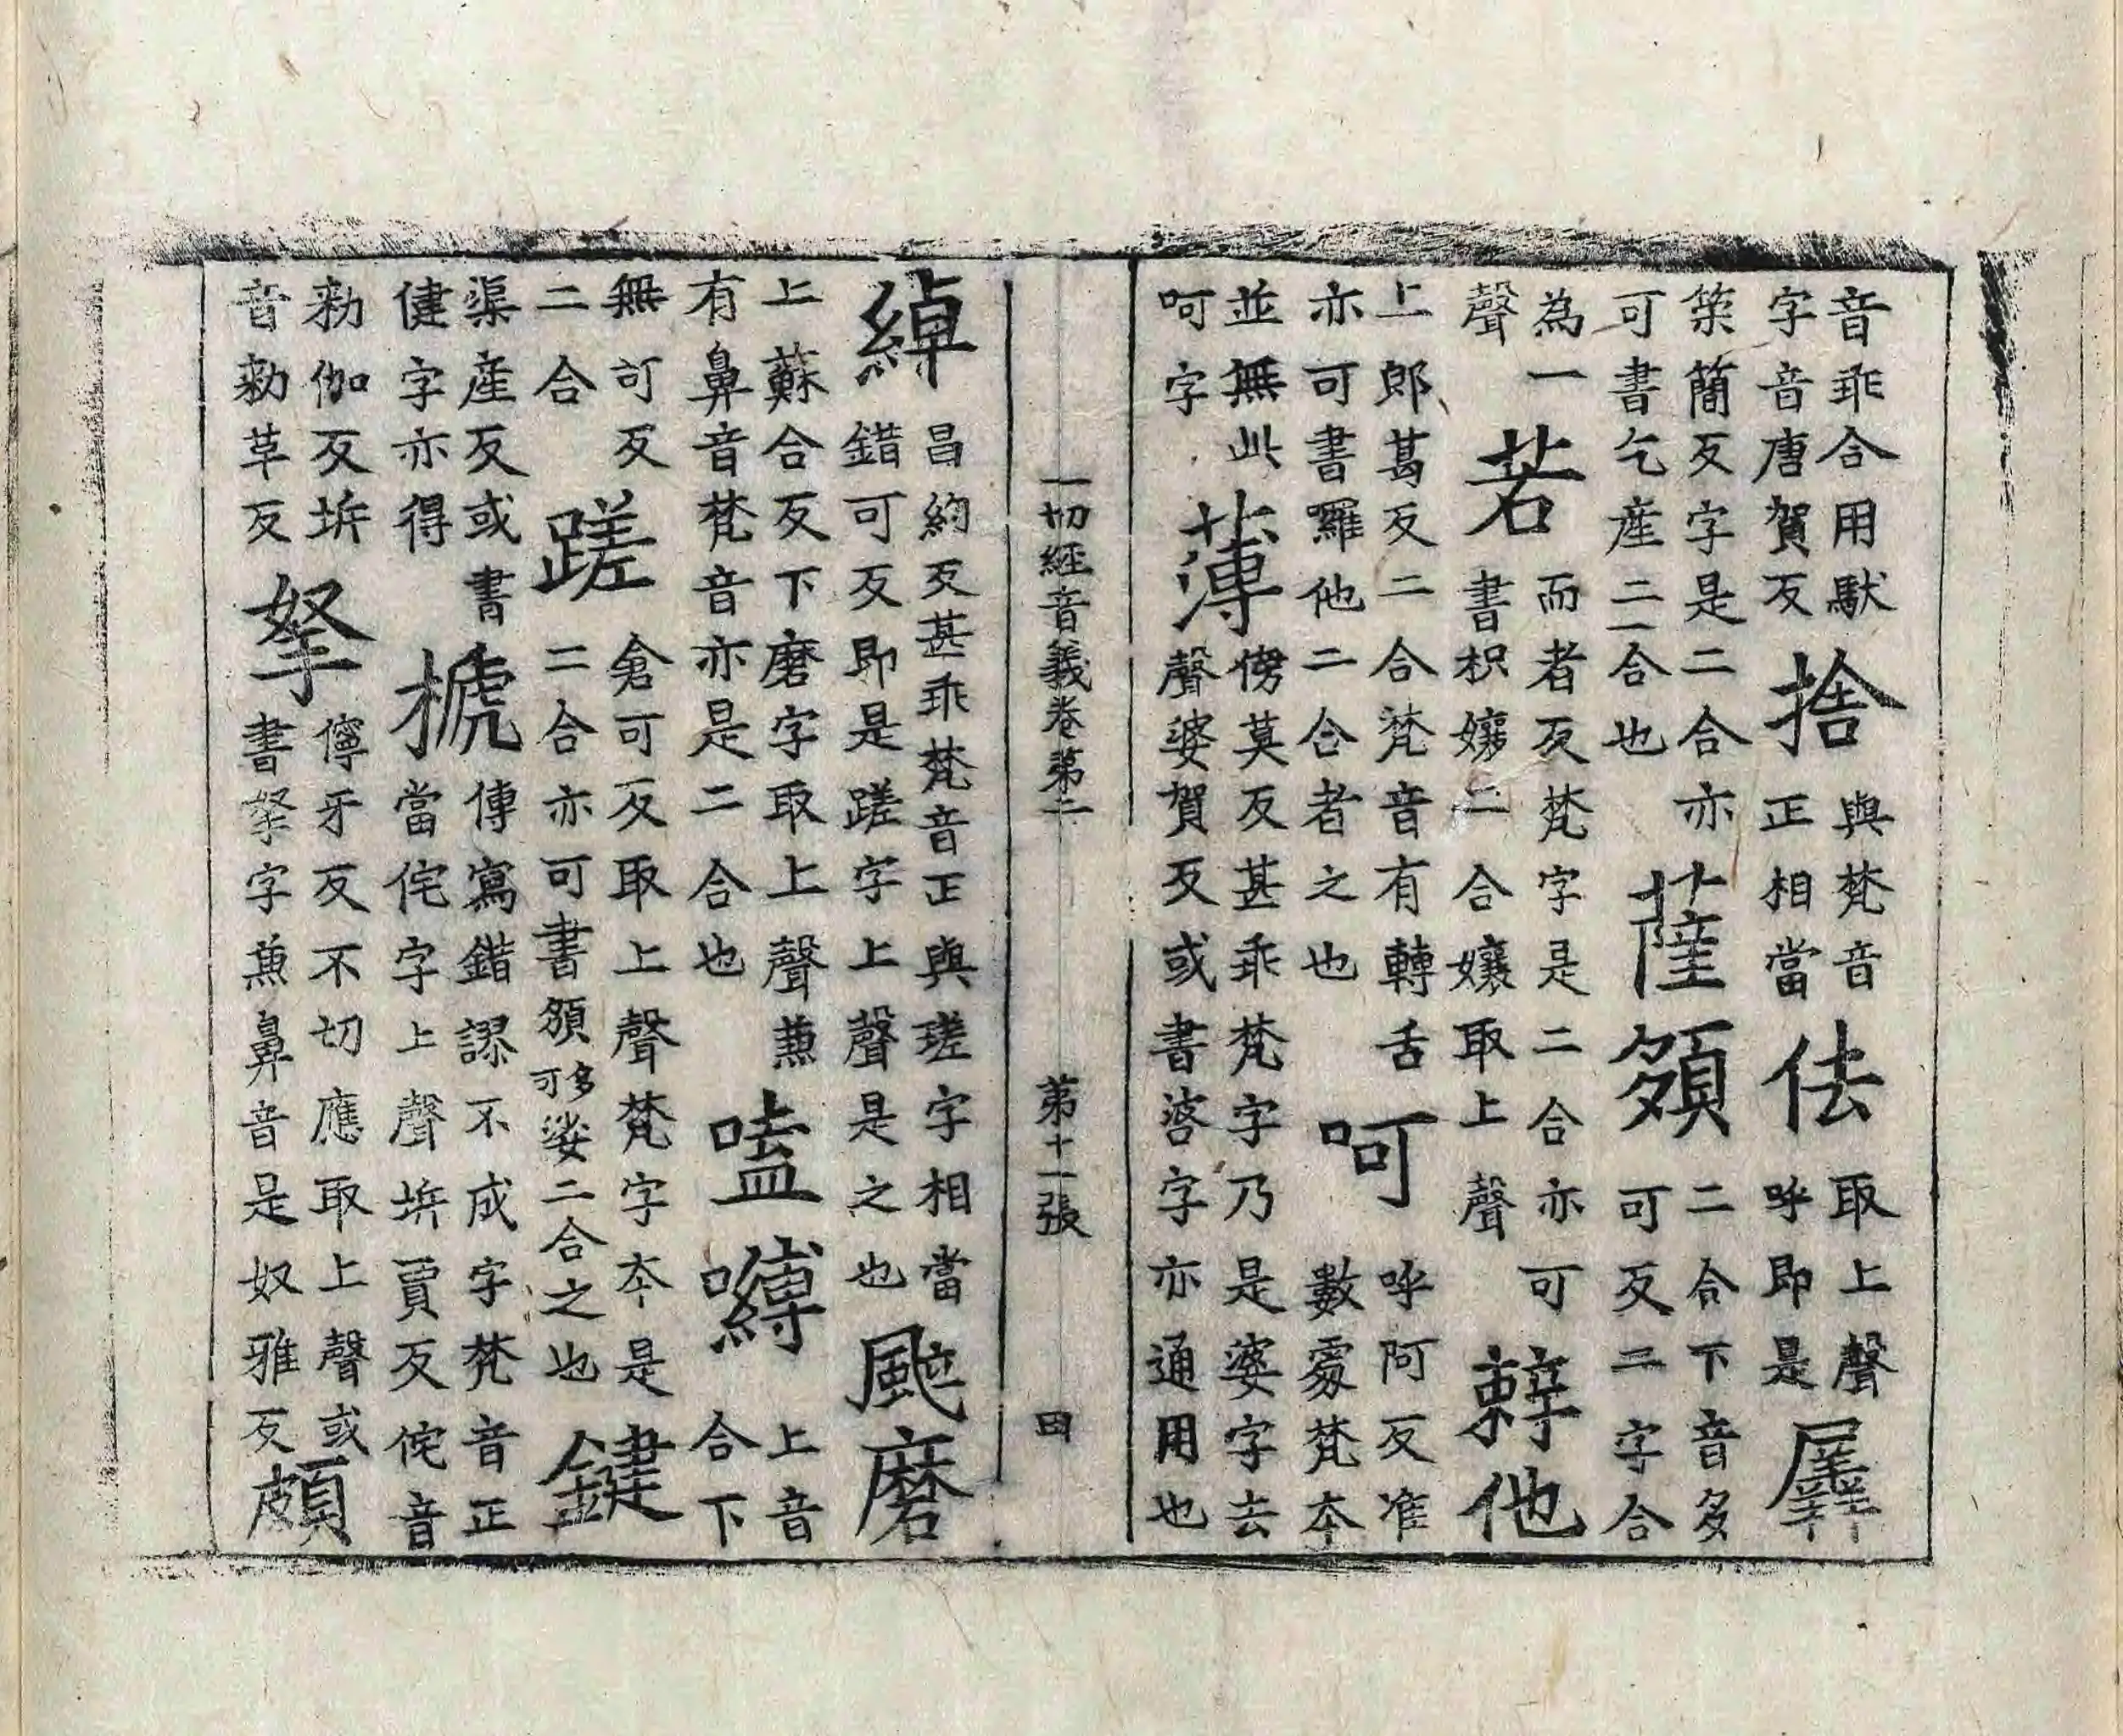 音乖合用馱
字音唐賀反
捨
與梵音
正相當
佉
取上聲
呼即是
羼
䇲簡反字是二合亦
可書乞産二合也
薩頞
二合下音多
可反二字合
為一
聲
若
而者反梵字是二合亦可
書枳孃二合孃取上聲
辢他
上郎葛反二合梵音有轉舌
亦可書囉他二合者之也
呵
呼阿反准
數處梵夲
並無此
呵字
薄
傍莫反甚乖梵字乃是婆字去
聲婆賀反或書字亦通用也
一切經音義卷第二 第十一張 田
綽
昌約反甚乖梵音正與瑳字相當
錯可反即是蹉字上聲是之也
颰磨
上蘇合反下磨字取上聲兼
有鼻音梵音亦是二合也
嗑嚩
上音
合下
無可反
二合
蹉
倉可反取上聲梵字夲是
二合亦可書頞多可娑二合之也
鍵
渠産反或書
健字亦得
搋
傳寫錯謬不成字梵音正
當侘字上聲坼賈反侘音
勑伽反坼
音勑革反
拏
儜牙反不切應取上聲或
書拏字兼鼻音是奴雅反
頗